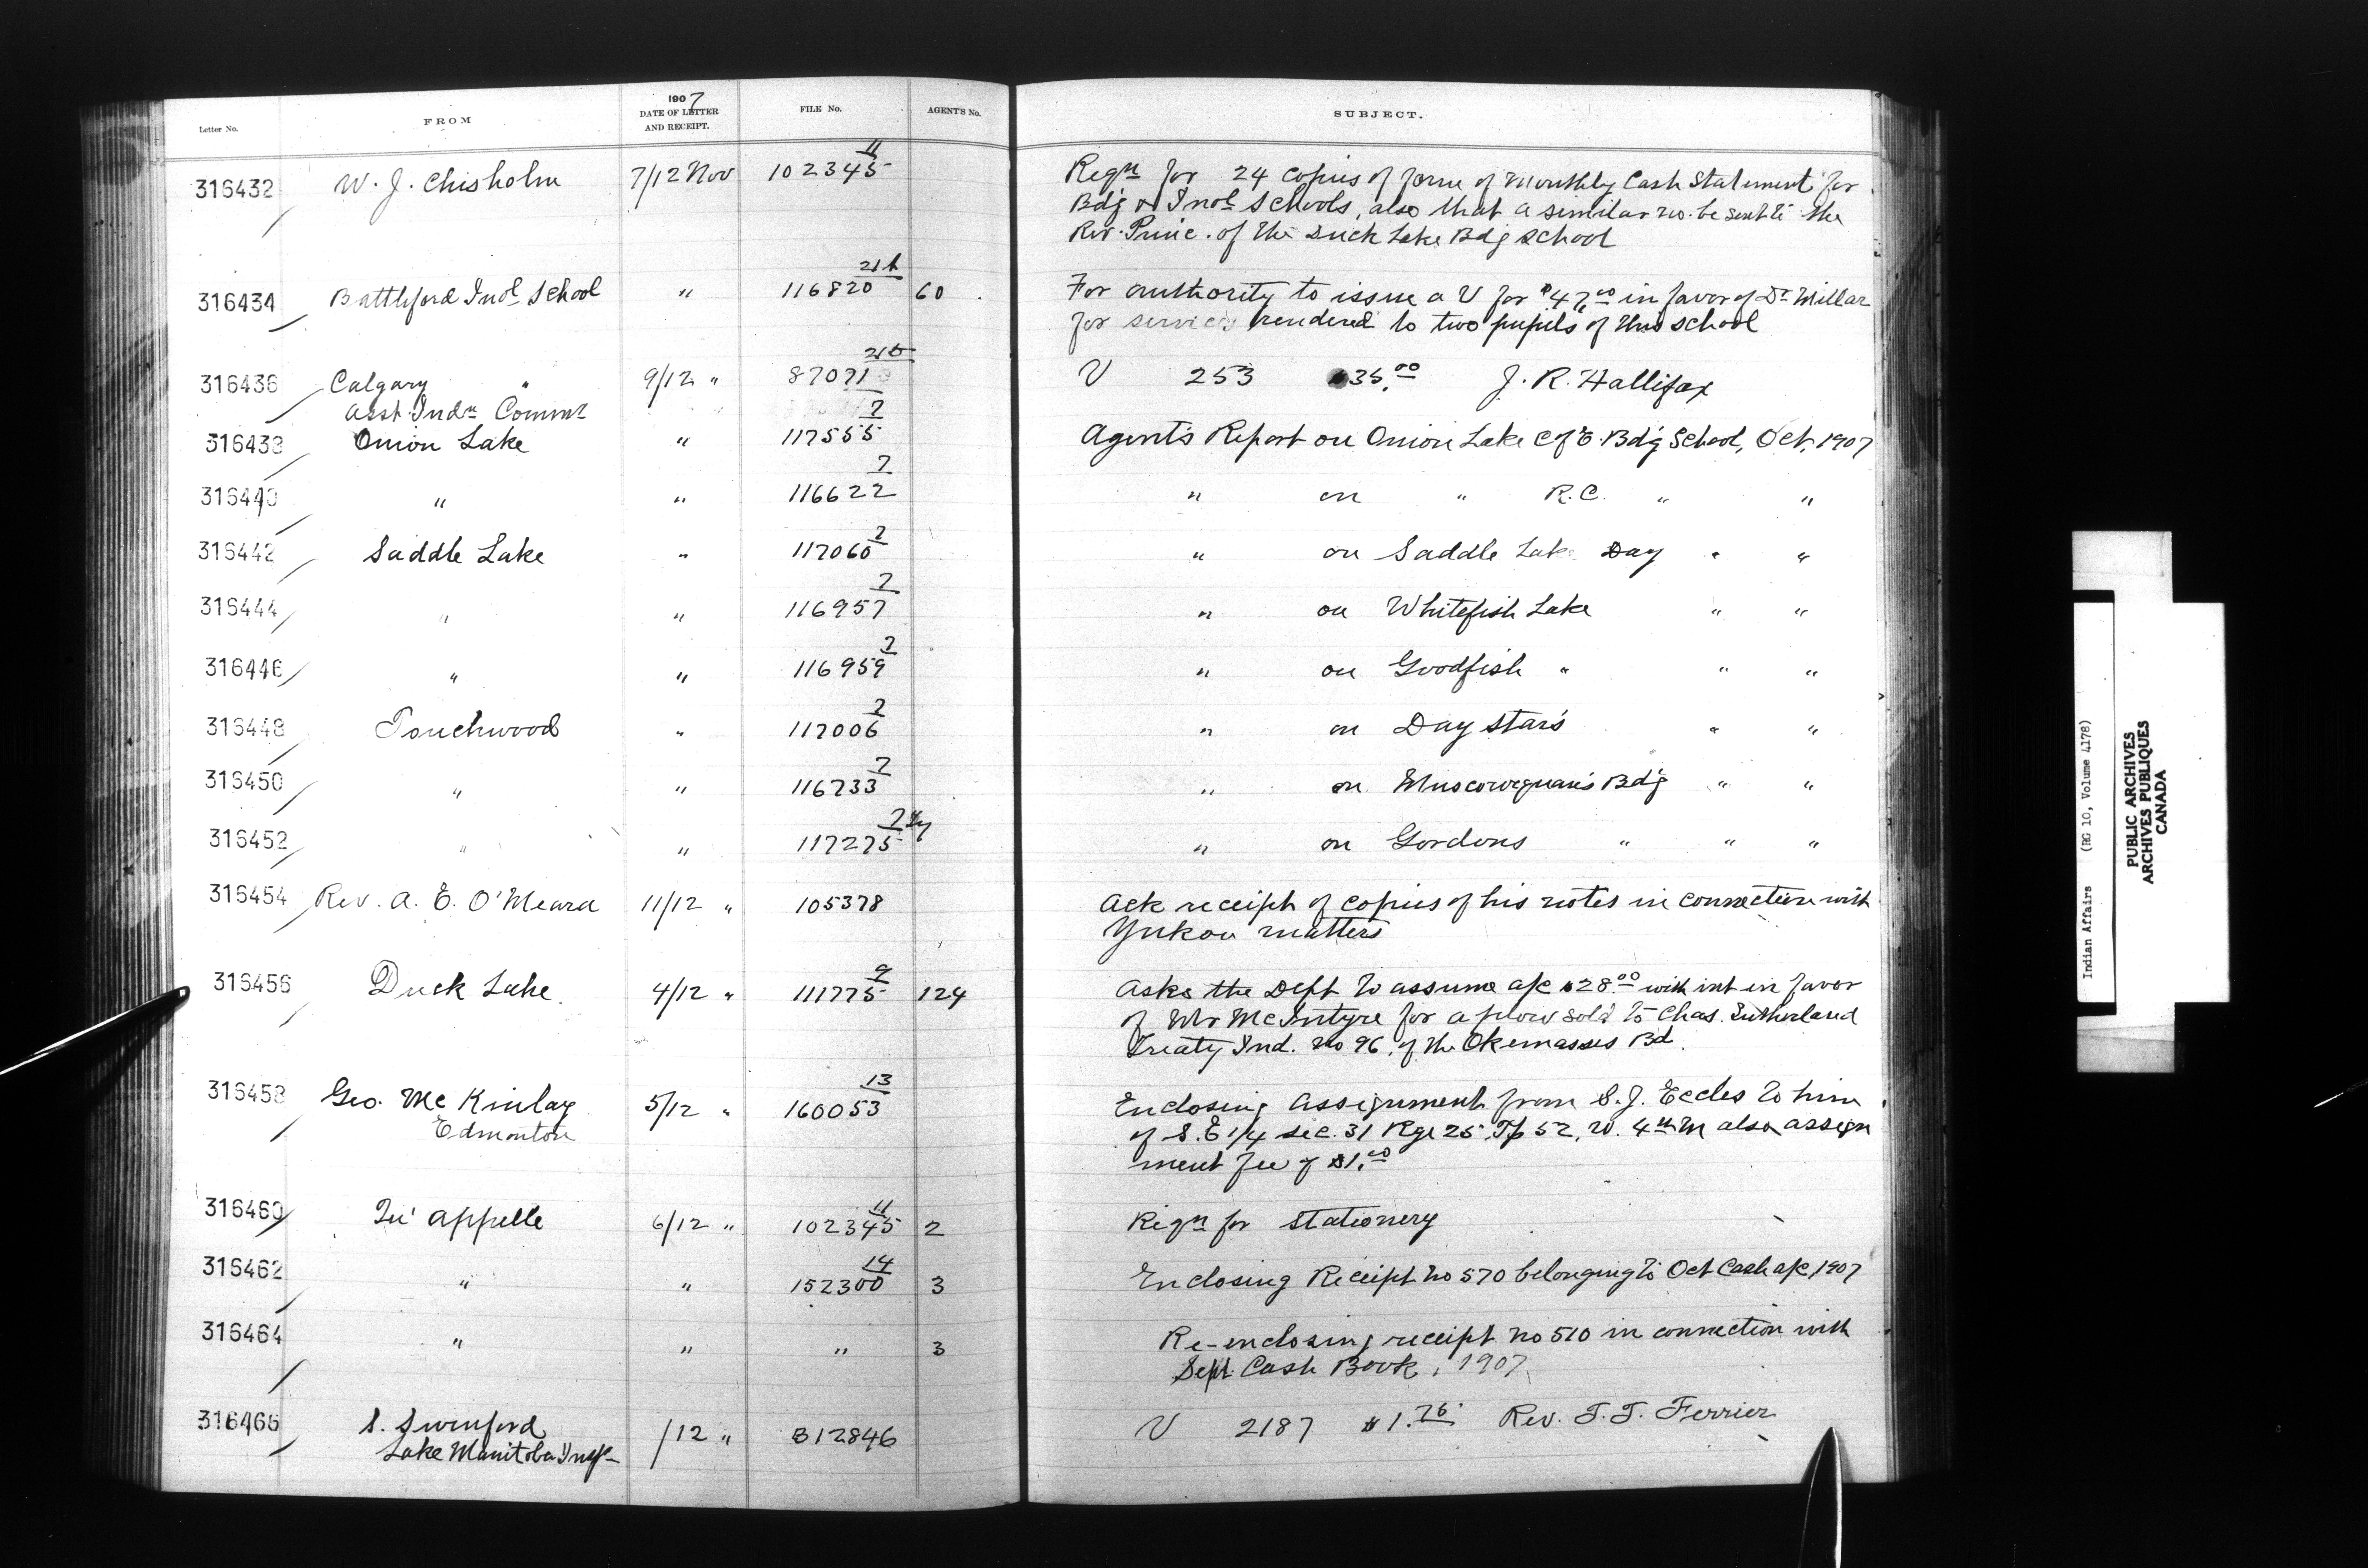 Letter No. FROM 1907 DATE OF LETTER AND RECEIPT. FILE No. AGENT'S No. SUBJECT.
316432 W. J. Chisholm 7/12 Nov 102345 11 Reqn for 24 copies of form of Monthly Cash Statement for
Bdg & Indl Schools, also that a similar no. be sent to the
Rev. Princ. of the Duck Lake Bdg School
316434 Battleford Indl School " 116820 60 For authority to issue a V for $47.00 in favor of Dr Millar
for services rendered to two pupils of this school
316436 Calgary " 9/12 " 87071 V 253 $35.00 J. R. Hallifax
Asst. Indn Commr
316438 Onion Lake " 117555 7 Agent's Report on Onion Lake C of E. Bdg School, Oct, 1907
316440 " " 116622 7 " on " R.C. " "
316442 Saddle Lake " 117060 7 " on Saddle Lake Day " "
316444 " " 116957 7 " on Whitefish Lake " "
316446 " " 116959 7 " on Goodfish " " "
316448 Touchwood " 117006 7 " on Day Star's " "
316450 " " 116733 7 " on Muscowequan's Bdg " "
316452 " " 117275 7 " on Gordons " " "
316454 Rev. A. E. O'Meara 11/12 " 105378 Ack receipt of copies of his notes in connection with
Yukon matters
316456 Duck Lake 4/12 " 111775 9 124 Asks the Dept to assume a/c $28.00 with int in favor
of Mr McIntyre for a plow sold to Chas. Sutherland
Treaty Ind. No 96, of the Okemasses Bd.
316458 Geo. McKinlay 5/12 " 160053 13 Enclosing assignment from S. J. Eccles to him
Edmonton of S.E 1/4 sec. 31 Rge 25 Tp 52, W. 4th M also assign
ment fee of $1.00
316460 Qu'Appelle 6/12 " 102345 11 2 Reqn for Stationery
316462 " " 152300 14 3 Enclosing Receipt No 570 belonging to Oct Cash a/c, 1907
316464 " " " 3 Re-enclosing receipt no 510 in connection with
Sept. Cash Book, 1907
316466 S. Swinford /12 " 312846 V 2187 $1.75 Rev. T. T. Ferrier
Lake Manitoba Insp
Indian Affairs (RG 10, Volume 4178)
PUBLIC ARCHIVES
ARCHIVES PUBLIQUES
CANADA